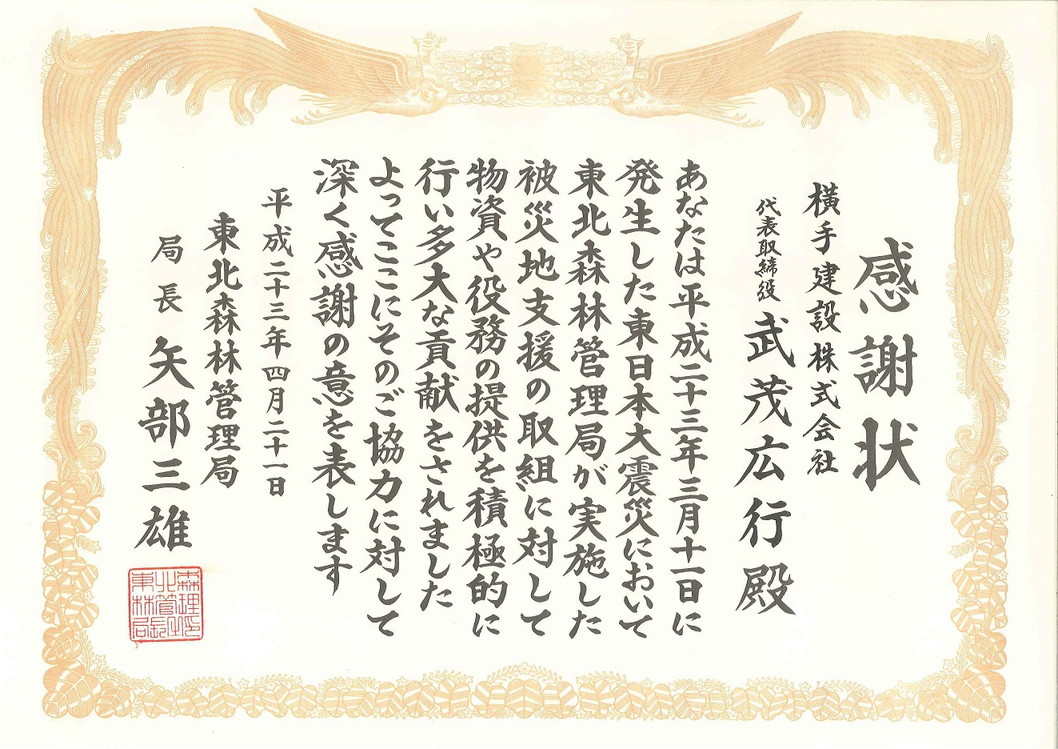 感謝状
横手建設株式会社
代表取締役 武茂広行 殿
あなたは平成二十三年三月十一日に
発生した東日本大震災において
東北森林管理局が実施した
被災地支援の取組に対して
物資や役務の提供を積極的に
行い多大な貢献をされました
よってここにそのご協力に対して
深く感謝の意を表します
平成二十三年四月二十一日
東北森林管理局
局長 矢部三雄